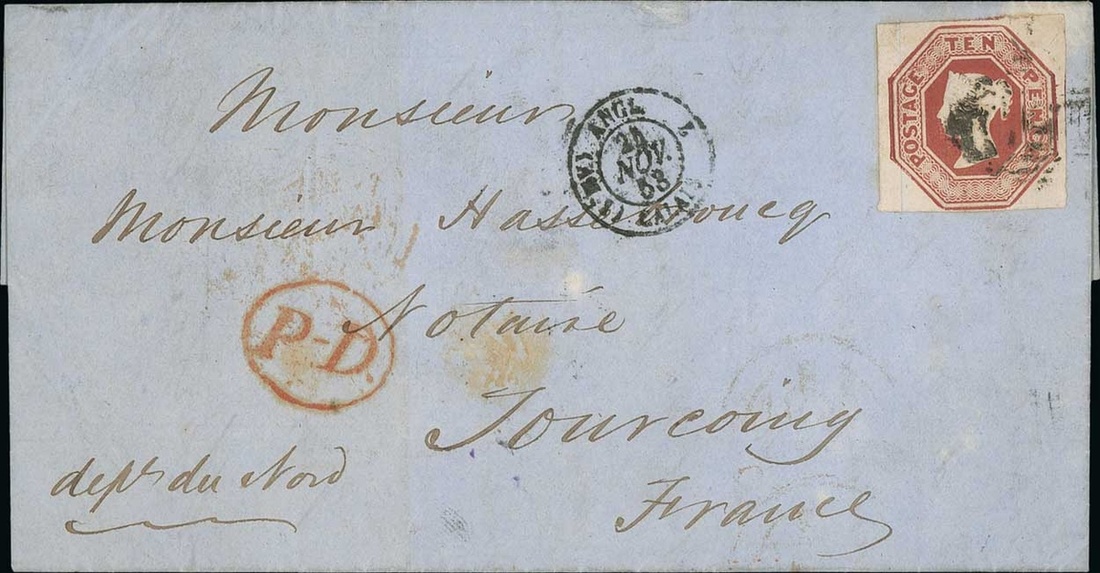 POSTAGE TEN PENCE
Monsieur
ANGL.
NOV.
53
CALAIS
Monsieur Hassebroucq
P-D.
Notaire
Tourcoing
dept du Nord
France